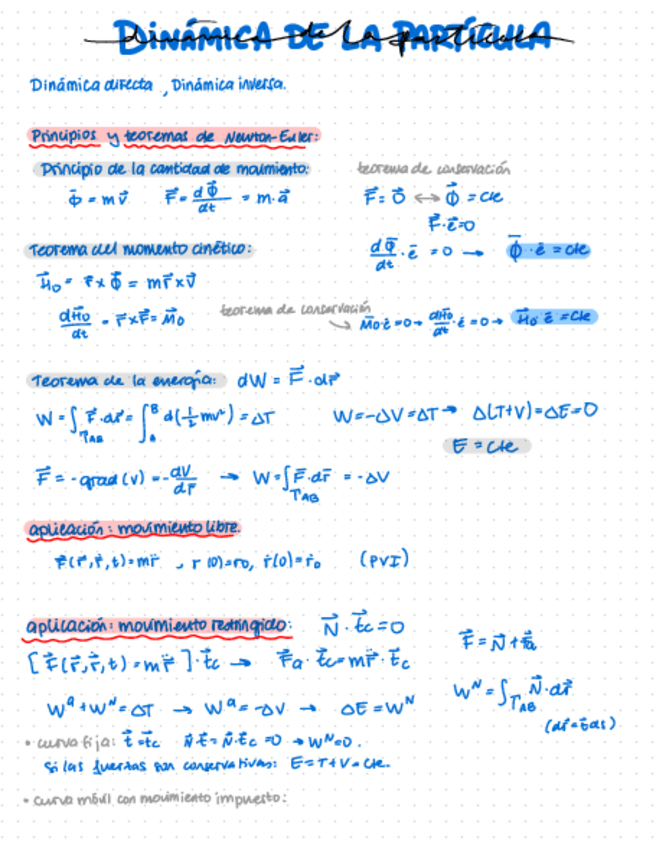 DINÁMICA DE LA PARTÍCULA
Dinámica directa, Dinámica inversa.
Principios y teoremas de Newton-Euler:
Principio de la cantidad de movimiento:
teorema de conservación
Φ̄ = m v̄    F⃗ = dΦ⃗/dt = m·a⃗
F⃗ = 0⃗ ↔ Φ⃗ = cte
F⃗·ē=0
Teorema del momento cinético:
dΦ̄/dt · ē = 0 → Φ̄ · ē = cte
H⃗o = r⃗ x Φ⃗ = m r⃗ x v⃗
dH⃗o/dt = r⃗ x F⃗ = M⃗o
teorema de conservación
M̄o·ē = 0 → dH̄o/dt · ē = 0 → H̄o · ē = cte
Teorema de la energía: dW = F⃗ · dr⃗
W = ∫_ΤAB F⃗·dr⃗ = ∫_A^B d(½mv²) = ΔT    W = -ΔV = ΔT → Δ(T+V) = ΔE = 0
E = cte
F⃗ = -grad(V) = -dV/dr̄ → W = ∫_ΤAB F̄·dr̄ = -ΔV
aplicación: movimiento libre.
F⃗(r⃗,ṙ,t) = m r̈ , r(0)=r0, ṙ(0)=ṙ0    (PVI)
aplicación: movimiento restringido: N⃗ · t⃗c = 0
F⃗ = N⃗ + F⃗a
[F⃗(r⃗,ṙ,t) = m r̈] · t⃗c → F⃗a · t⃗c = m r̈ · t⃗c
W^N = ∫_ΤAB N⃗·dr⃗
W^a + W^N = ΔT → W^a = -ΔV → ΔE = W^N
(dr̄ = t̄ds)
• curva fija: t⃗ = t⃗c  N⃗·t⃗ = N⃗·t⃗c = 0 → W^N = 0.
Si las fuerzas son conservativas: E = T + V = cte.
• curva móvil con movimiento impuesto: